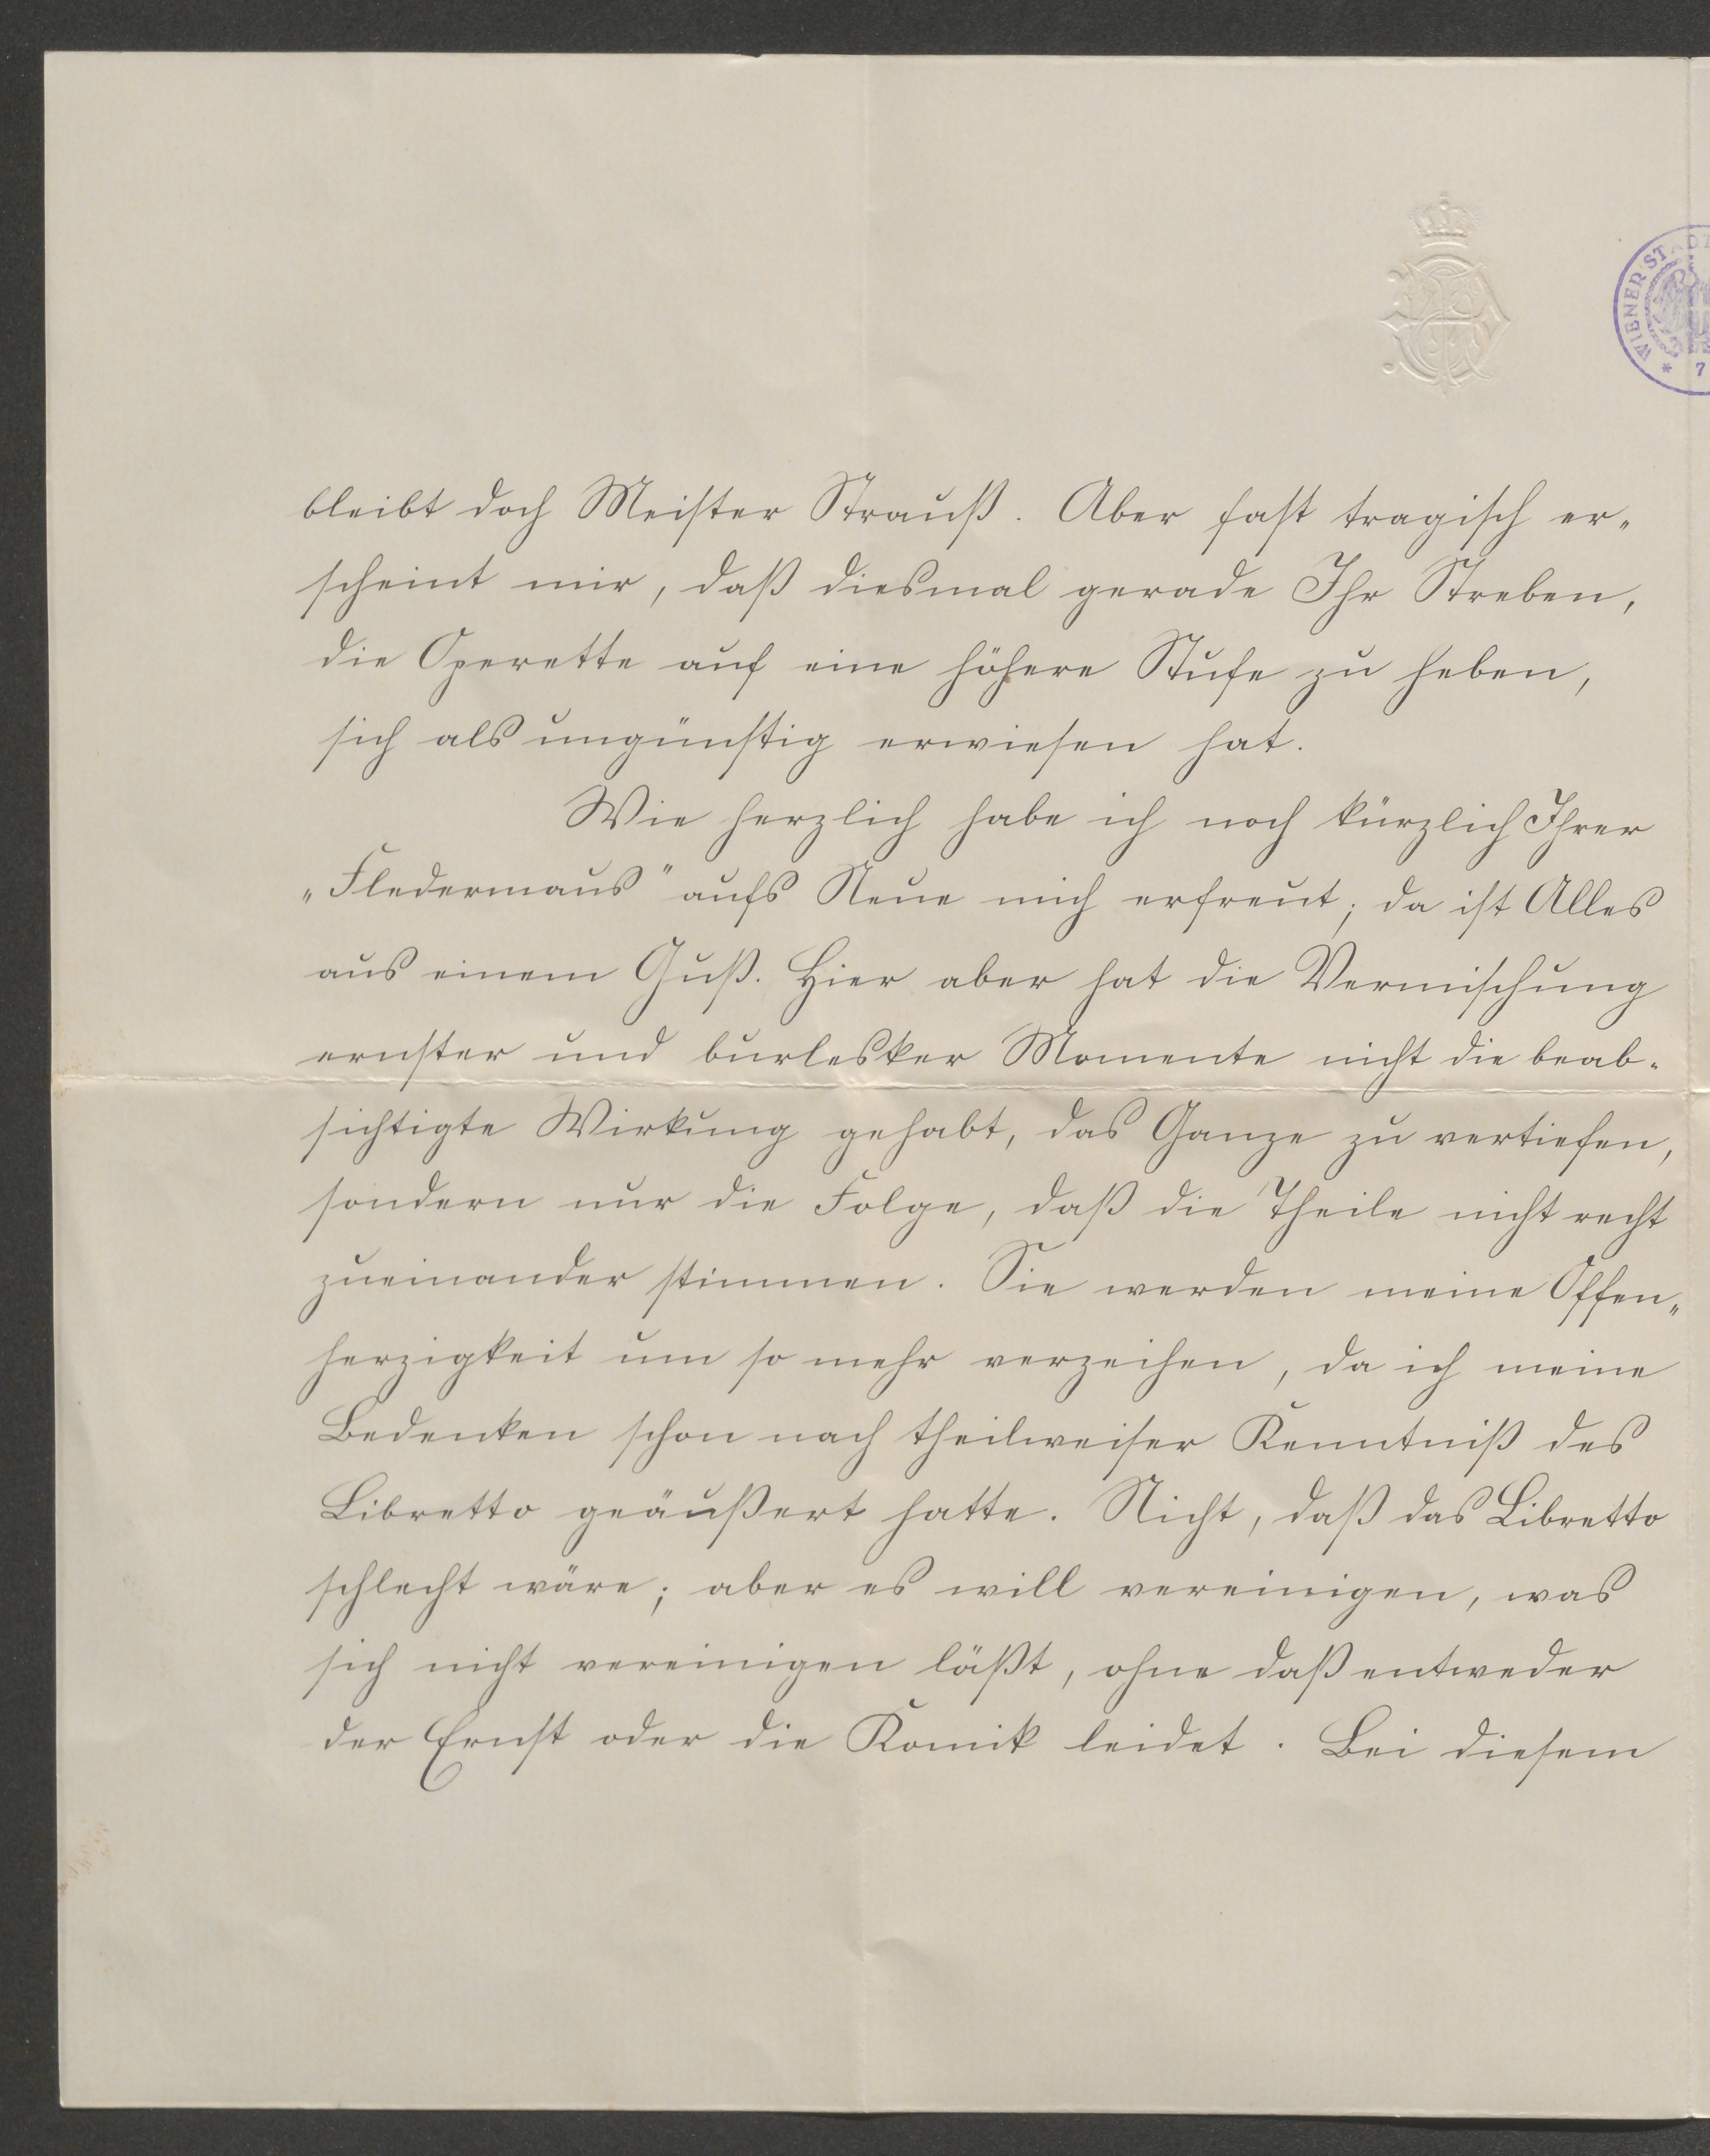 WIENER STADT
* 7
bleibt doch Meister Strauß. Aber fast tragisch er-
scheint mir, daß diesmal gerade Ihr Streben,
die Operette auf eine höhere Stufe zu heben,
sich als ungünstig erwiesen hat.
Wie herzlich habe ich noch kürzlich Ihrer
„Fledermaus" aufs Neue mich erfreut; da ist Alles
aus einem Guß. Hier aber hat die Vermischung
ernster und burlesker Momente nicht die beab-
sichtigte Wirkung gehabt, das Ganze zu vertiefen,
sondern nur die Folge, daß die Theile nicht recht
zueinander stimmen. Sie werden meine Offen-
herzigkeit um so mehr verzeihen, da ich meine
Bedenken schon nach theilweiser Kenntniß des
Libretto geäußert hatte. Nicht, daß das Libretto
schlecht wäre; aber es will vereinigen, was
sich nicht vereinigen läßt, ohne daß entweder
der Ernst oder die Komik leidet. Bei diesem